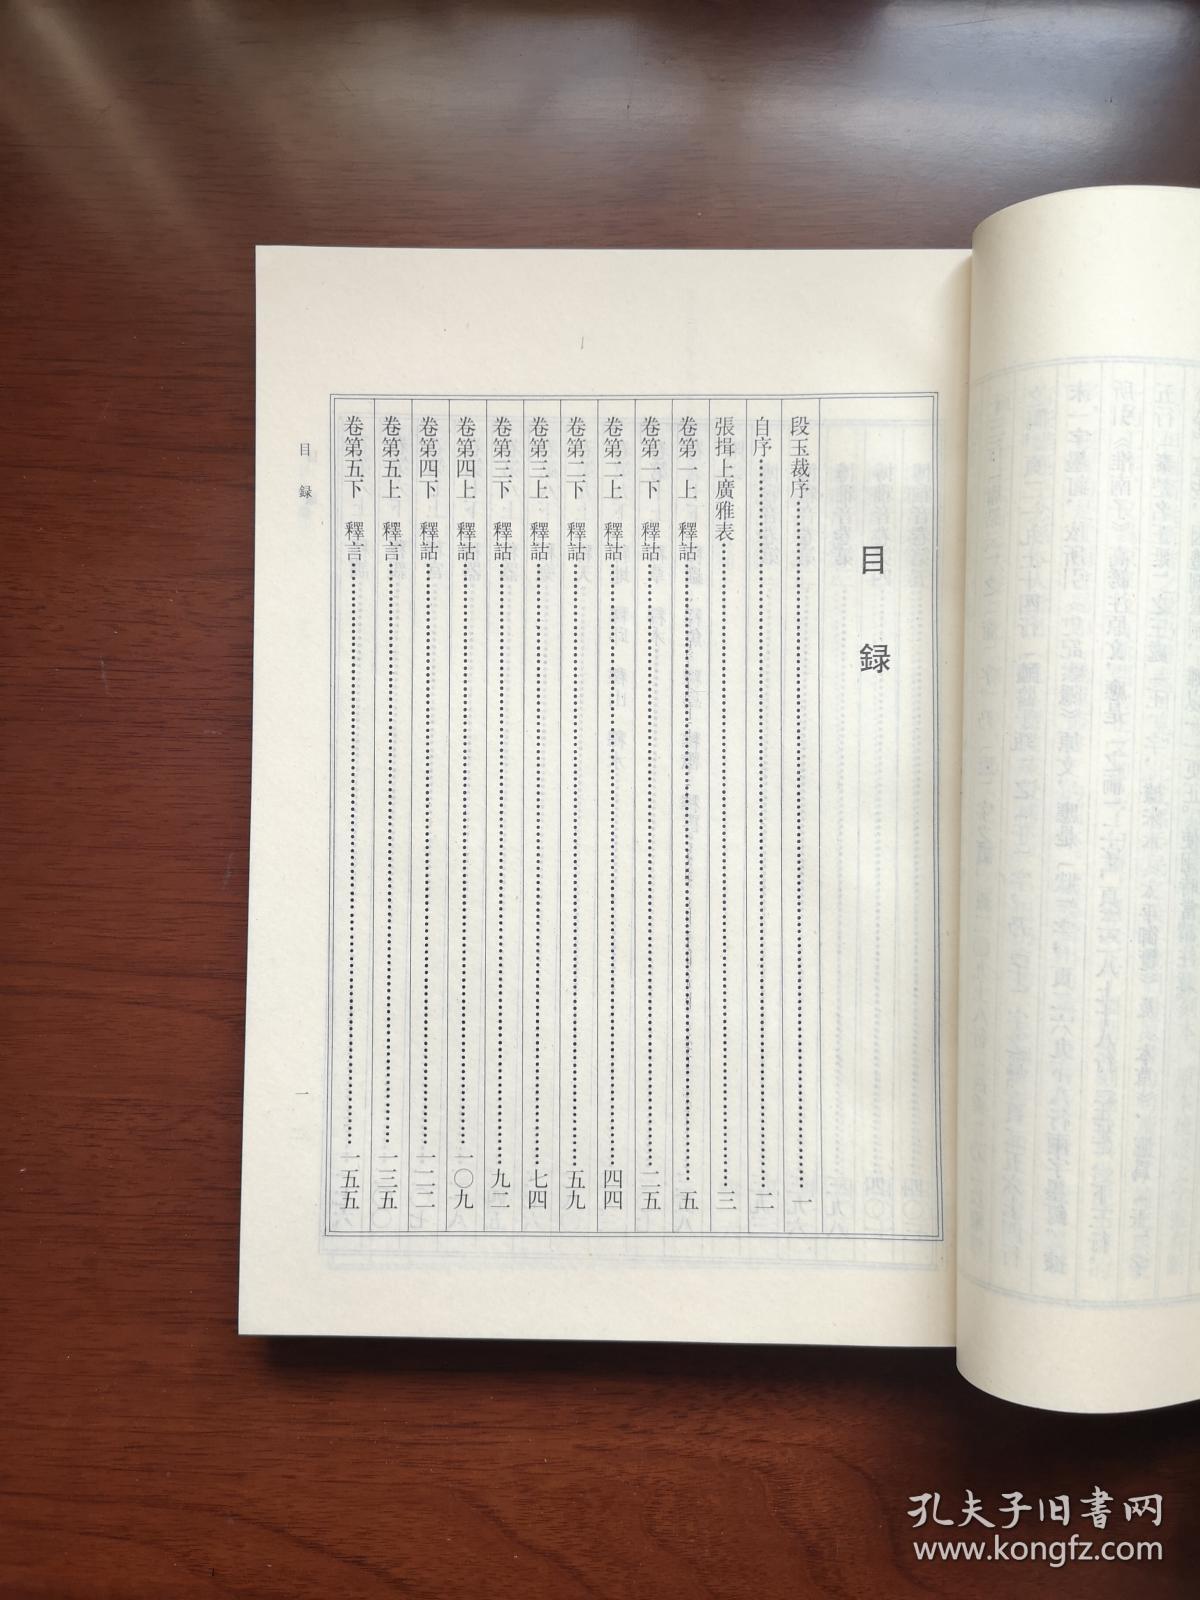 目録
段玉裁序……一
自序……二
張揖上廣雅表……三
卷第一上 釋詁……五
卷第一下 釋詁……二五
卷第二上 釋詁……四四
卷第二下 釋詁……五九
卷第三上 釋詁……七四
卷第三下 釋詁……九二
卷第四上 釋詁……一〇九
卷第四下 釋詁……一二二
卷第五上 釋言……一三五
卷第五下 釋言……一五五
目録
一
孔夫子旧书网
www.kongfz.com